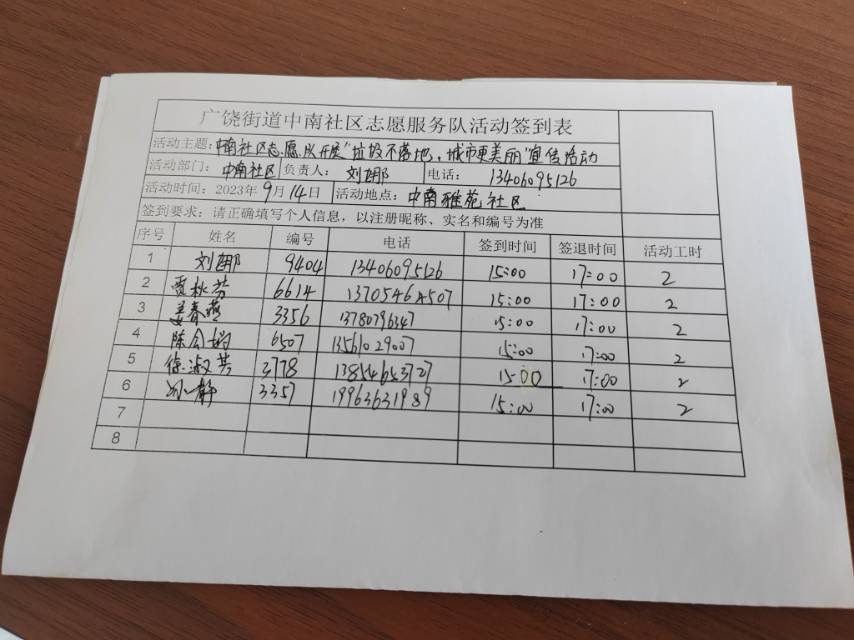 广饶街道中南社区志愿服务队活动签到表
活动主题：中南社区志愿队开展"垃圾不落地，城市更美丽"宣传活动
活动部门：中南社区 负责人：刘娜 电话：13406095126
活动时间：2023年9月14日 活动地点：中南雅苑社区
签到要求：请正确填写个人信息，以注册昵称、实名和编号为准
序号 姓名 编号 电话 签到时间 签退时间 活动工时
1 刘娜 9404 13406095126 15:00 17:00 2
2 贾秋芳 6614 13705462507 15:00 17:00 2
3 姜春燕 3356 13780796347 15:00 17:00 2
4 陈 6507 13561029007 15:00 17:00 2
5 徐淑芳 3778 13854653727 15:00 17:00 2
6 孙静 3357 19963631989 15:00 17:00 2
7
8